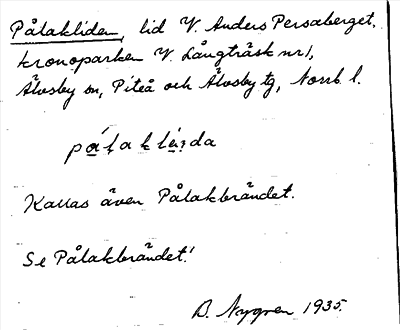 Påtakliden, lid V. Anders Persaberget,
kronoparken V. Långträsk nr 1,
Älvsby sn, Piteå och Älvsby tg, Norrb. l.
Kallas även Påtakbrändet.
Se Påtakbrändet!
B. Nygren 1935.